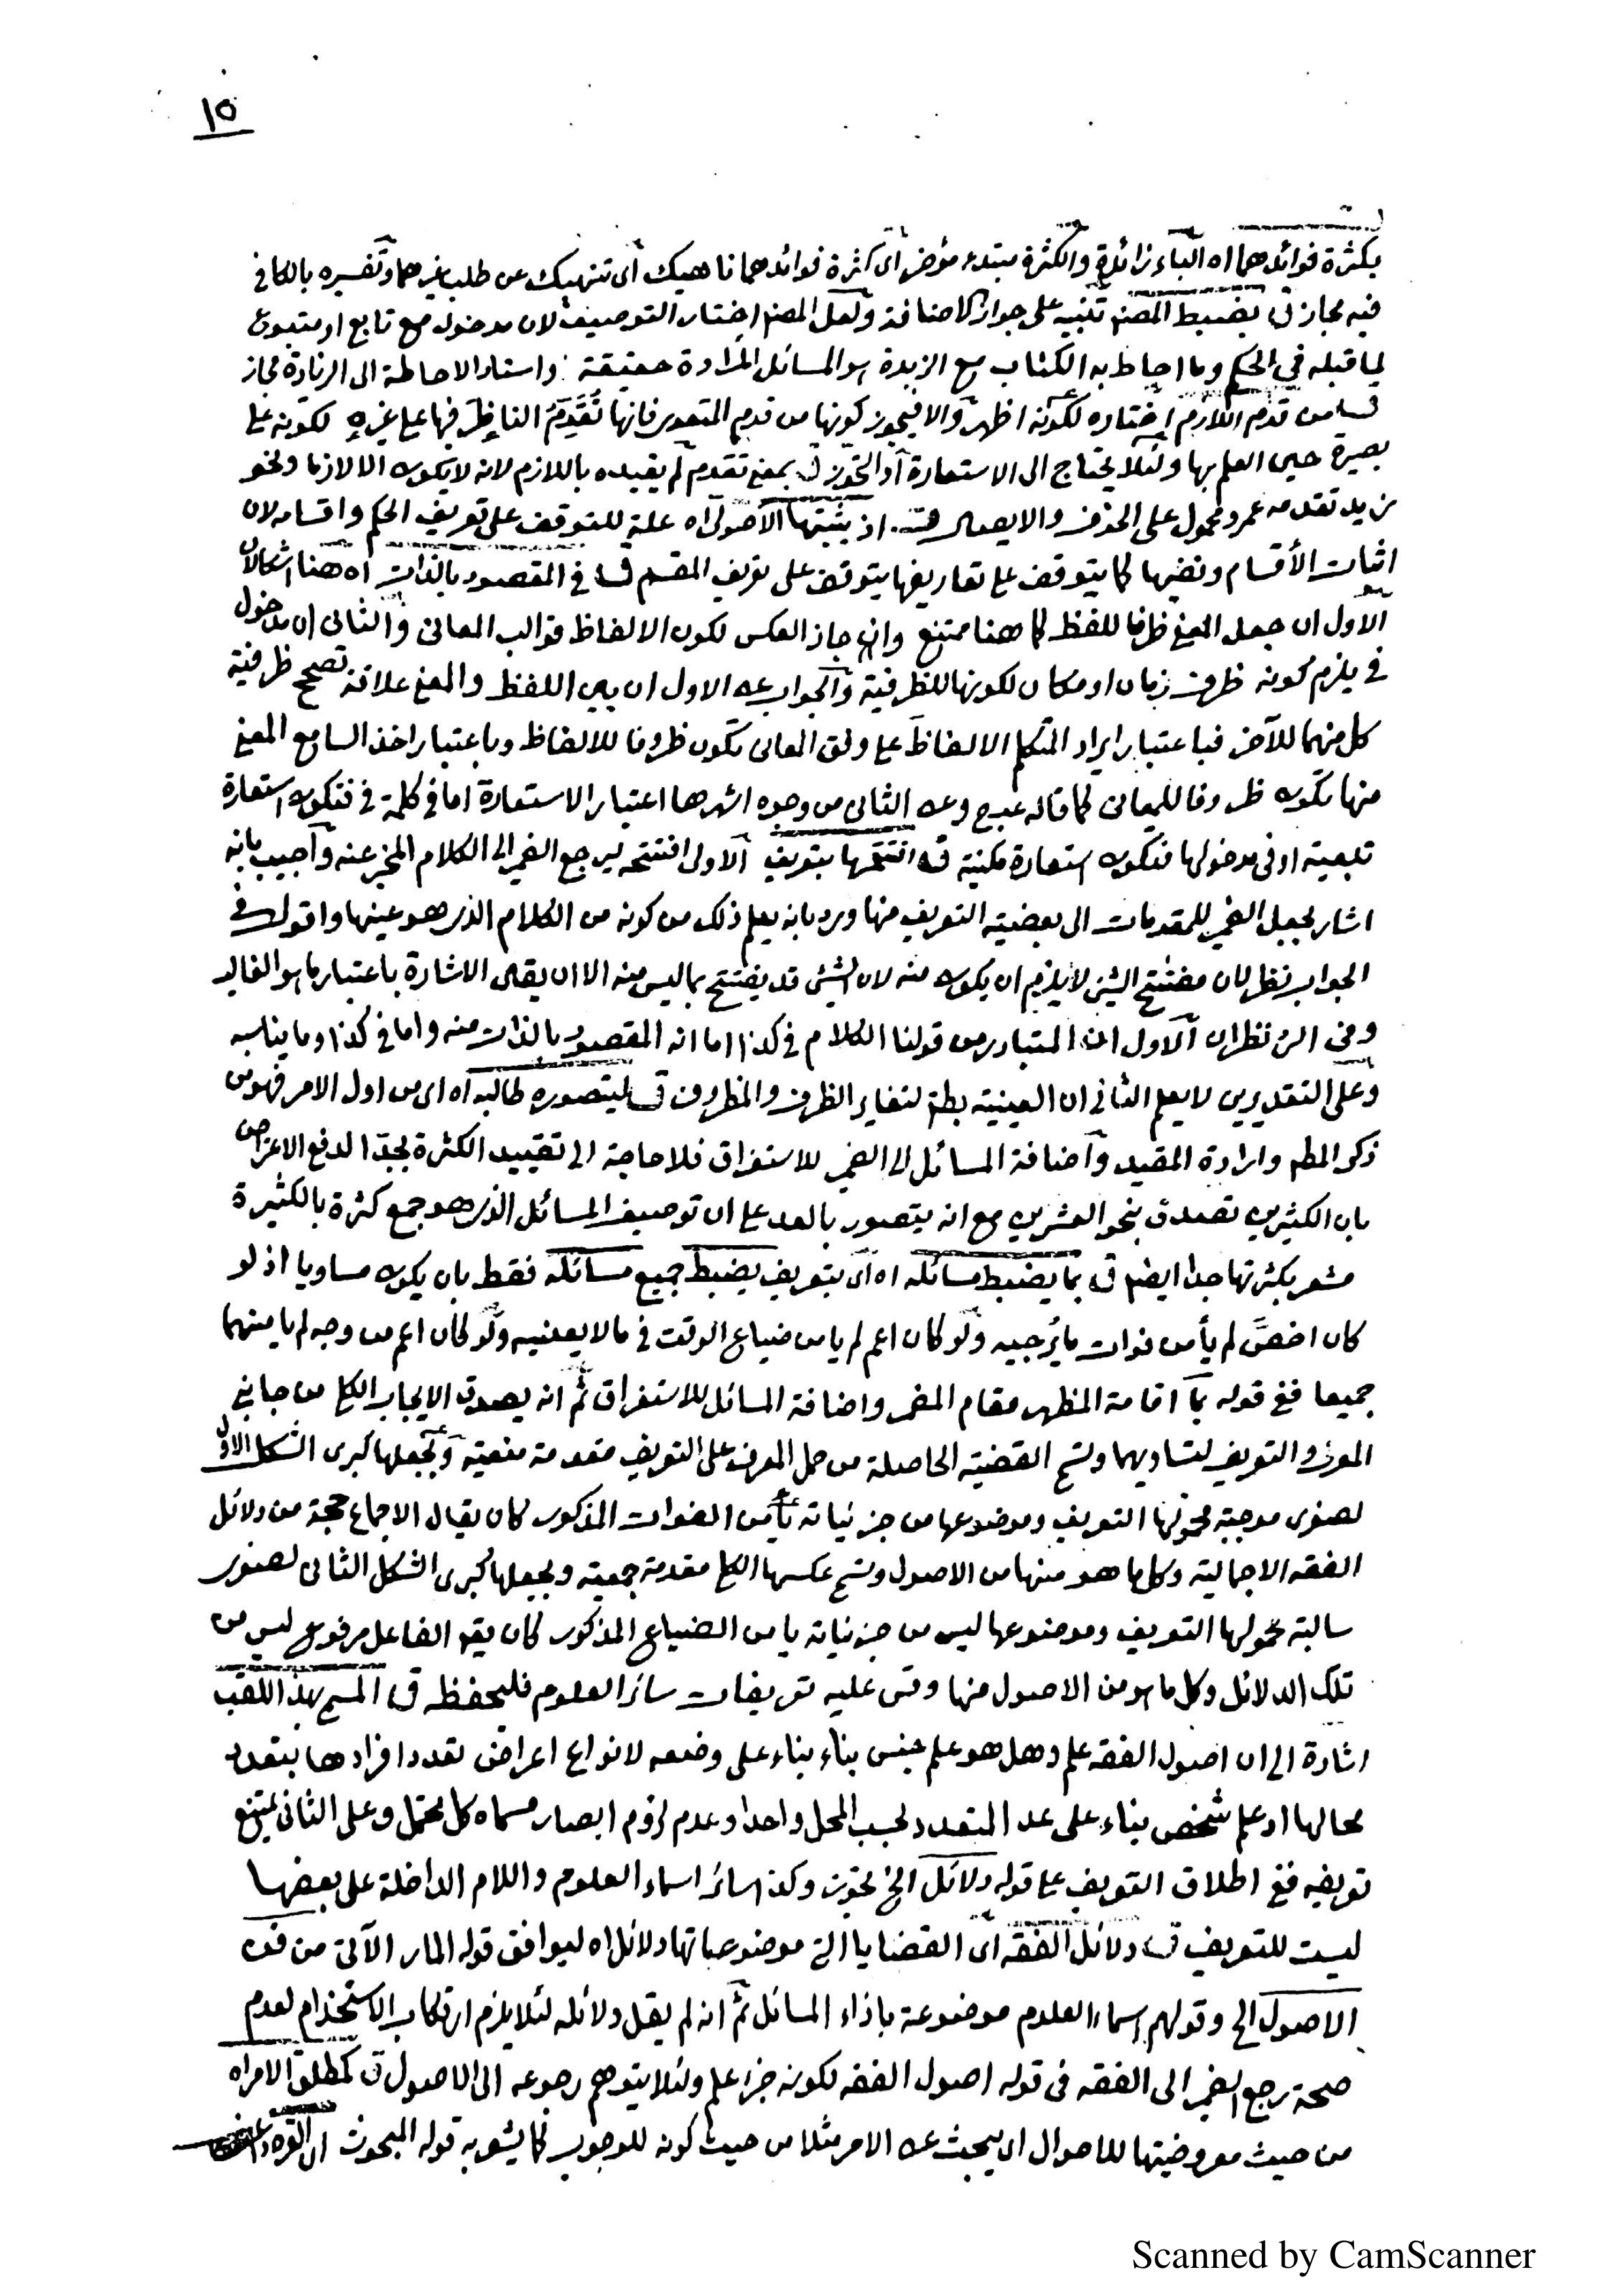 ١٥
بكثرة فوائدهما اه الباء زائدة والكثرة مبتدء مؤخر اى كثرة فوائدهما ناهيك اى تنهيك عن طلب غيرهما وتفسيره بالكافى
فيه مجاز بضبط المصنف تنبيه على جواز الاضافة ولعل المصنف اختار التوصيف لان مدخول مع تابع او متبوع
لما قبله فى الحكم وما احاط به الكتاب مع الزبدة هو المسائل المرادة حقيقة واسناد الاحاطة الى الزبدة مجاز
من قدم اللازم اختاره لكونه اظهر والا فيجوز كونها من قدم المتعدى فانها تُقَدِّمَ الناظر فيها على غيره لكونه على
بصيرة حين العلم بها ولئلا يحتاج الى الاستعارة او التجوز بمعنى تقدم لم يقيده باللازم لانه لا يكون الا لازما ونحو
زيد تقدمه عمرو محمول على الحذف والايصال اذ يثبتها الاصولى اه علة للتوقف على تعريف الحكم واقسامه لان
اثبات الأقسام ونفيها كما يتوقف على تعاريفها يتوقف على تعريف المقسم فى المقصود بالذات اه هنا اشكالان
الاول ان جعل المعنى ظرفا للفظ كما هنا ممتنع وان جاز العكس لكون الالفاظ قوالب المعانى والثانى ان مدخول
فى يلزم كونه ظرف زمان او مكان لكونها للظرفية والجواب عن الاول ان بين اللفظ والمعنى علاقة تصحح ظرفية
كل منهما للآخر فباعتبار ايراد المتكلم الالفاظ على وفق المعانى تكون ظروفا للالفاظ وباعتبار اخذ السامع المعنى
منها تكون ظروفا للمعانى كما قاله وعن الثانى من وجوه اشهرها اعتبار الاستعارة اما فى كلمة فى فتكون استعارة
تبعية او فى مدخولها فتكون استعارة مكنية افتتحها بتعريف الاولى افتتحه ليرجع الضمير الى الكلام المخبر عنه واجيب بانه
اشار بجعل الضمير للمقدمات الى بعضية التعريف منها ورد بانه يعلم ذلك من كونه من الكلام الذى هو عينها واقول فى
الجواب نظر لان مفتتح الشئ لا يلزم ان يكون منه لان الشئ قد يفتتح بما ليس منه الا ان يقال الاشارة باعتبار ما هو الغالب
وفى الرد نظران الاول ان المتبادر من قولنا الكلام فى كذا اما انه المقصود بالذات منه واما فى كذا وما يناسبه
وعلى التقديرين لا يعلم الثانى ان العينية بطم لتغاير الظرف والمظروف ليتصوره طالبه اه اى من اول الامر فهو من
ذكر المطلق وارادة المقيد واضافة المسائل الى الضمير للاستغراق فلا حاجة الى تقييد الكثرة بجدّا لدفع الاعتراض
بان الكثيرين تصدق بنحو العشرين مع انه يتصور بالعد على ان توصيف المسائل الذى هو جمع كثرة بالكثيرة
مشعر بكثرتها جدا ايضا بما يضبط مسائله اه اى بتعريف يضبط جميع مسائله فقط بان يكون مساويا اذ لو
كان اخصّ لم يأمن فوات ما يُرجيه ولو كان اعم لم يامن ضياع الوقت فى ما لا يعنيه ولو كان اعم من وجه لم يامنهما
جميعا ففى قوله بما اقامة المظهر مقام المضمر واضافة المسائل للاستغراق ثم انه يصدق الايجاب الكلى من جانبى
المعرف والتعريف لتساويهما وتسمى القضية الحاصلة من حمل المعرف على التعريف مقدمة منعية وبجعلها كبرى الشكل الاول
لصغرى موجبة محمولها التعريف وموضوعها من جزئياته تأمن الفوات المذكور كان يقال الاجماع حجة من دلائل
الفقه الاجمالية وكل ما هو منها من الاصول وتسمى عكسها الكلى مقدمة جمعية وبجعلها كبرى الشكل الثانى لصغرى
سالبة محمولها التعريف وموضوعها ليس من جزئياته يامن الضياع المذكور كان يقال الفاعل مرفوع ليس من
تلك الدلائل وكل ما هو من الاصول منها وقس عليه تعريفات سائر العلوم فليحفظ المسمى بهذا اللقب
اشارة الى ان اصول الفقه علم وهل هو علم جنس بناء بناء على وضعه لانواع اعراض تعدد افرادها بتعدد
محالها او علم شخص بناء على عد المتعدد بحسب المحل واحدا وعدم لزوم ابصار مسماه كل محتمل وعلى الثانى يمتنع
تعريفه ففى اطلاق التعريف على قوله دلائل الخ تجوّز وكذا سائر اسماء العلوم واللام الداخلة على بعضها
ليست للتعريف دلائل الفقه اى القضايا التى موضوعاتها دلائل اه ليوافق قوله المار الآتى من فن
الاصول الخ وقولهم اسماء العلوم موضوعة بازاء المسائل ثم انه لم يقل دلائله لئلا يلزم ارتكاب الاستخدام لعدم
صحة رجع الضمير الى الفقه فى قوله اصول الفقه لكونه جزء علم ولئلا يتوهم رجوعه الى الاصول كمطلق الامر اه
من حيث معروضيتها للاحوال اى يبحث عن الامر مثلا من حيث كونه للوجوب كما يشعر به قوله المبحوث